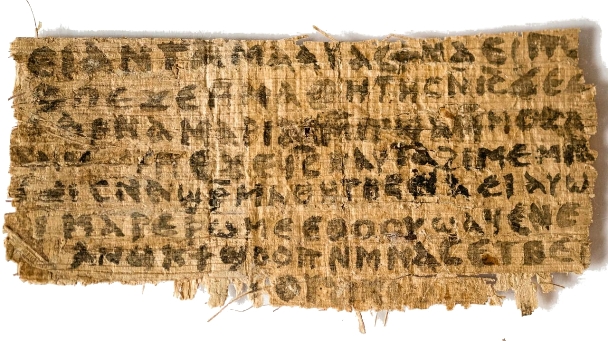 ⲉⲓⲁⲛⲧⲁⲙⲁⲁⲩⲁⲥϯⲛⲁⲉⲓⲡ
ⲡⲉϫⲉⲙⲙⲁⲑⲏⲧⲏⲥⲛⲓ̅ⲥ̅ϫⲉⲥ
ⲁⲣⲛⲁⲙⲁⲣⲓⲁⲙⲙⲡϣⲁⲙⲙⲟⲥⲁ
ⲡⲉϫⲉⲓ̅ⲥ̅ⲛⲁⲩⲧⲁϩⲓⲙⲉⲙⲛ
ⲥⲛⲁϣⲣⲙⲁⲑⲏⲧⲏⲥⲛⲁⲉⲓⲁⲩⲱ
ⲓⲙⲁⲣⲉⲣⲱⲙⲉⲉⲑⲟⲟⲩϣⲁϥⲉⲛⲉ
ⲁⲛⲟⲕϯϣⲟⲟⲡⲛⲙⲙⲁⲥⲉⲧⲃⲉⲡ